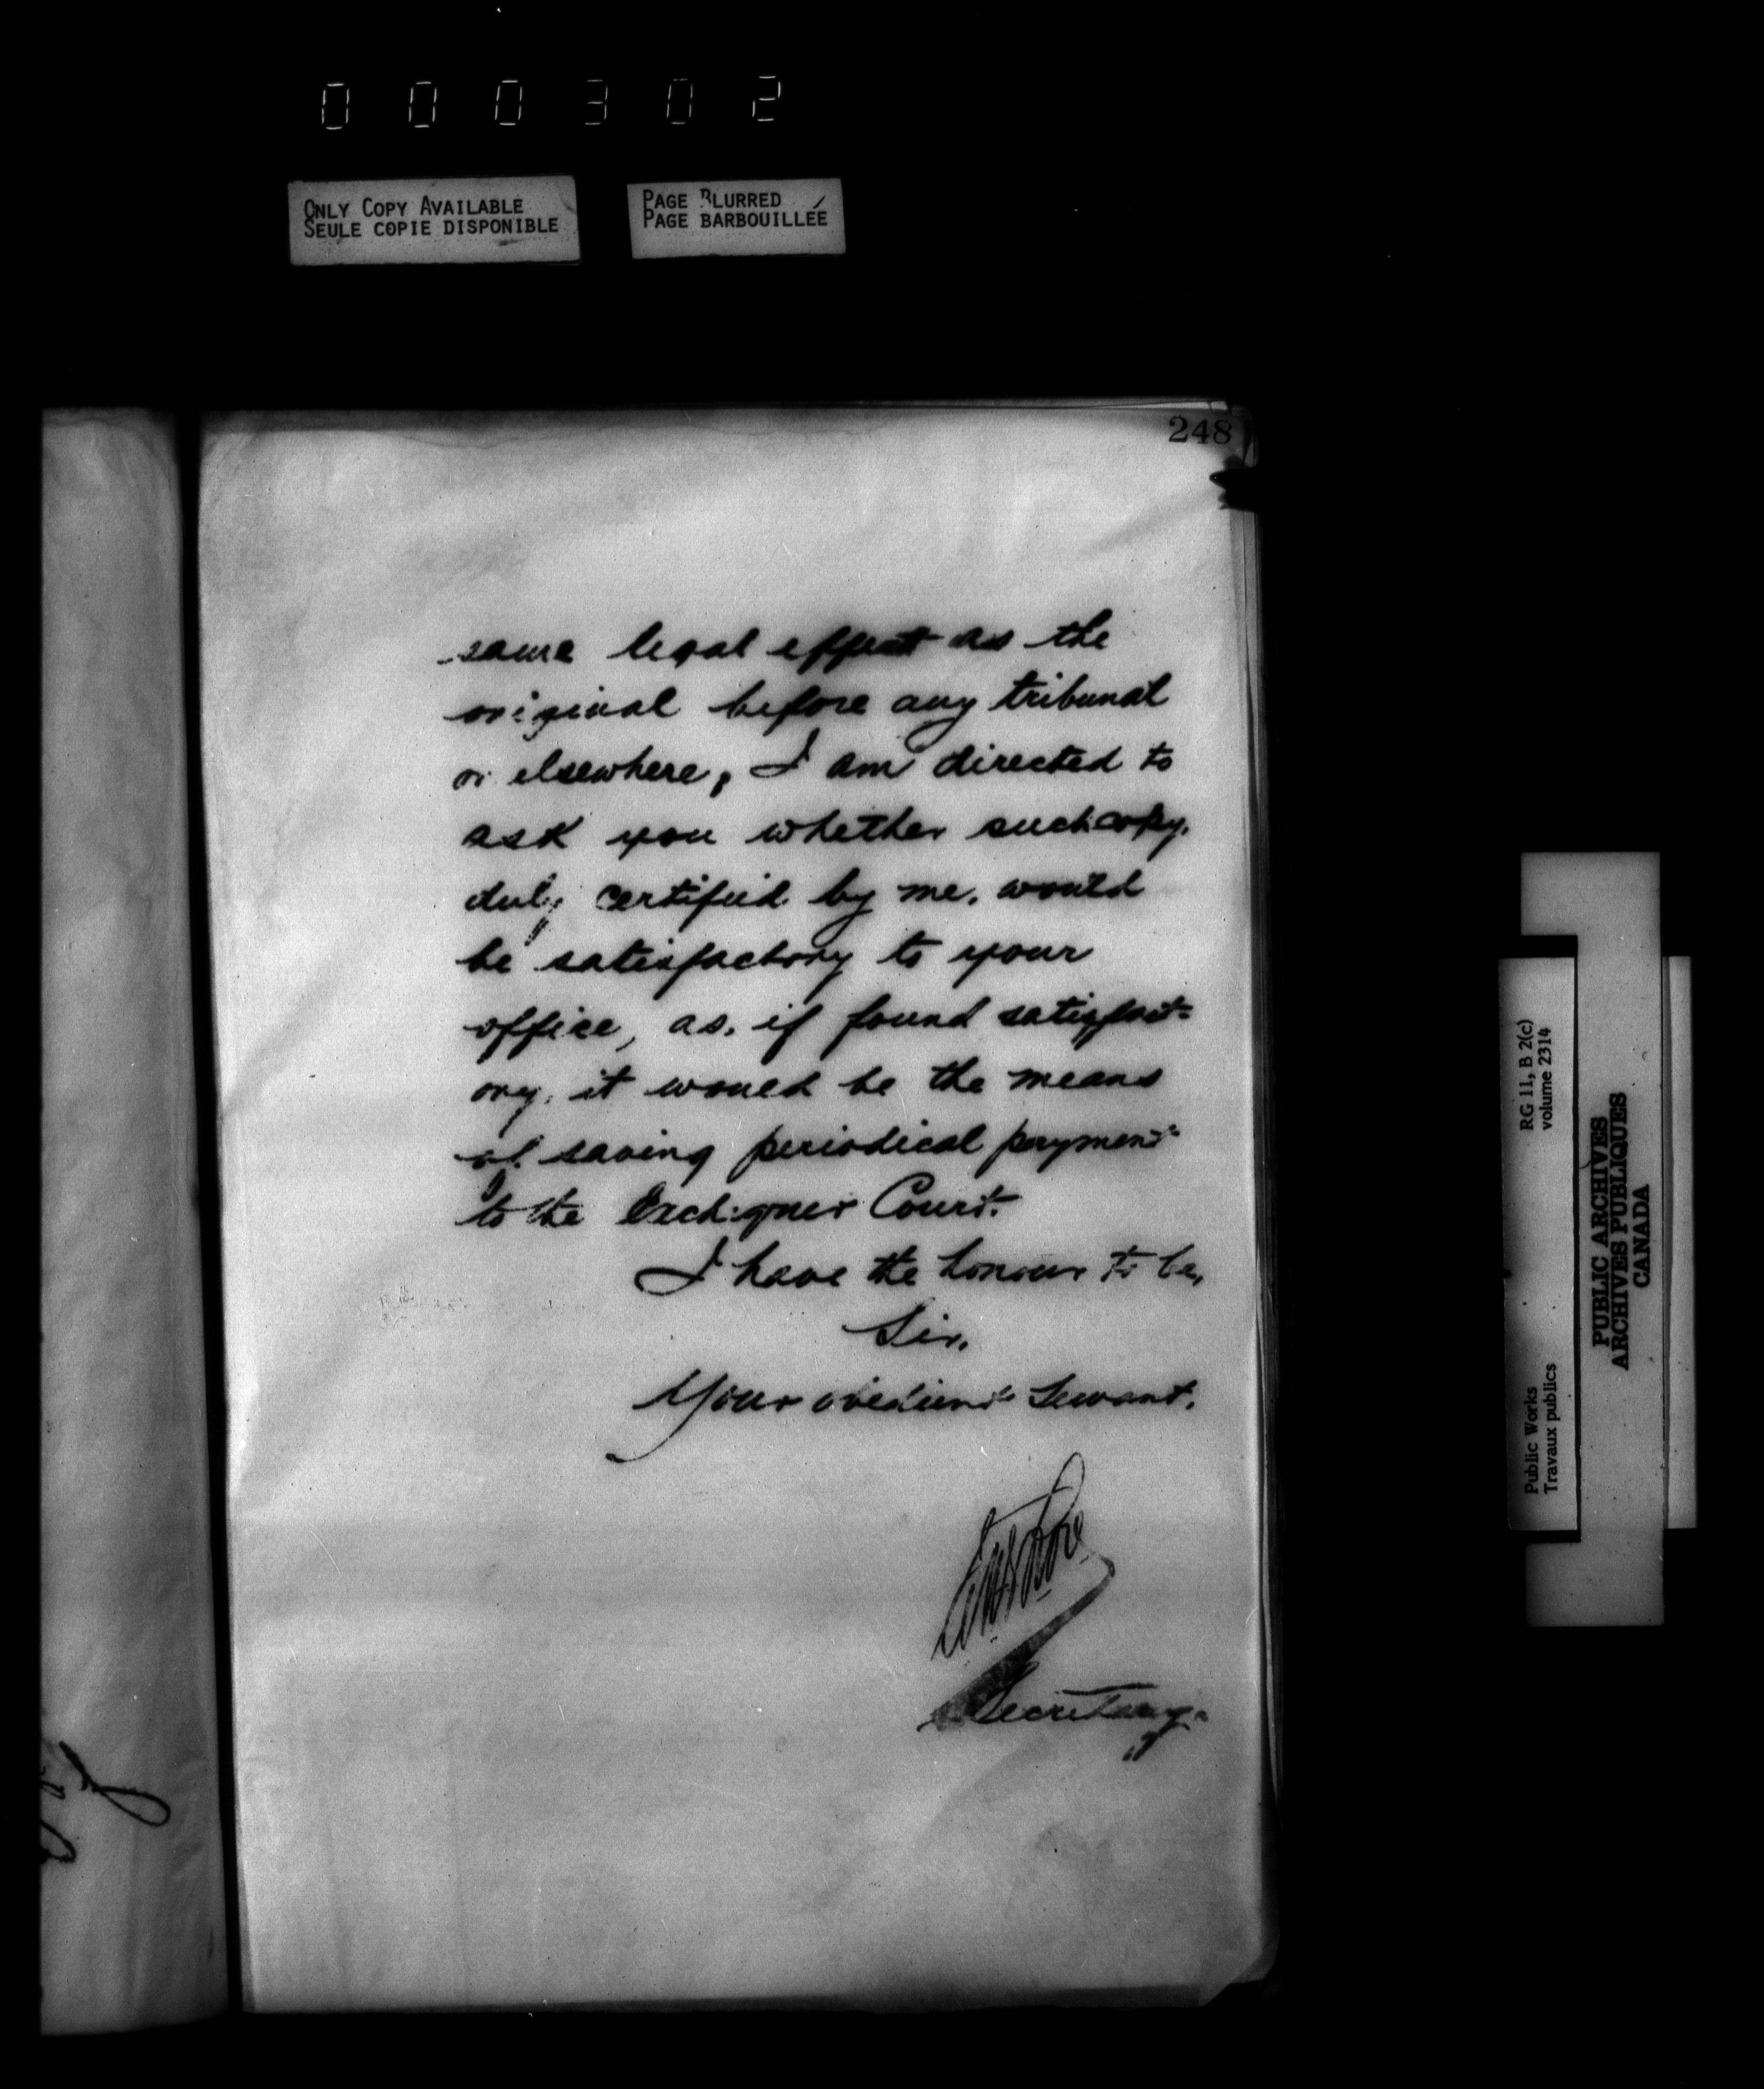 000302
ONLY COPY AVAILABLE
SEULE COPIE DISPONIBLE
PAGE BLURRED
PAGE BARBOUILLÉE
248
same legal effect as the
original before any tribunal
or elsewhere, I am directed to
ask you whether such copy,
duly certified by me, would
be satisfactory to your
office, as, if found satisfact=
ory, it would be the means
of saving periodical payments
to the Exchequer Court.
I have the honour to be,
Sir,
Your obedient Servant,
Secretary.
RG 11, B 2(c)
volume 2314
Public Works
Travaux publics
PUBLIC ARCHIVES
ARCHIVES PUBLIQUES
CANADA